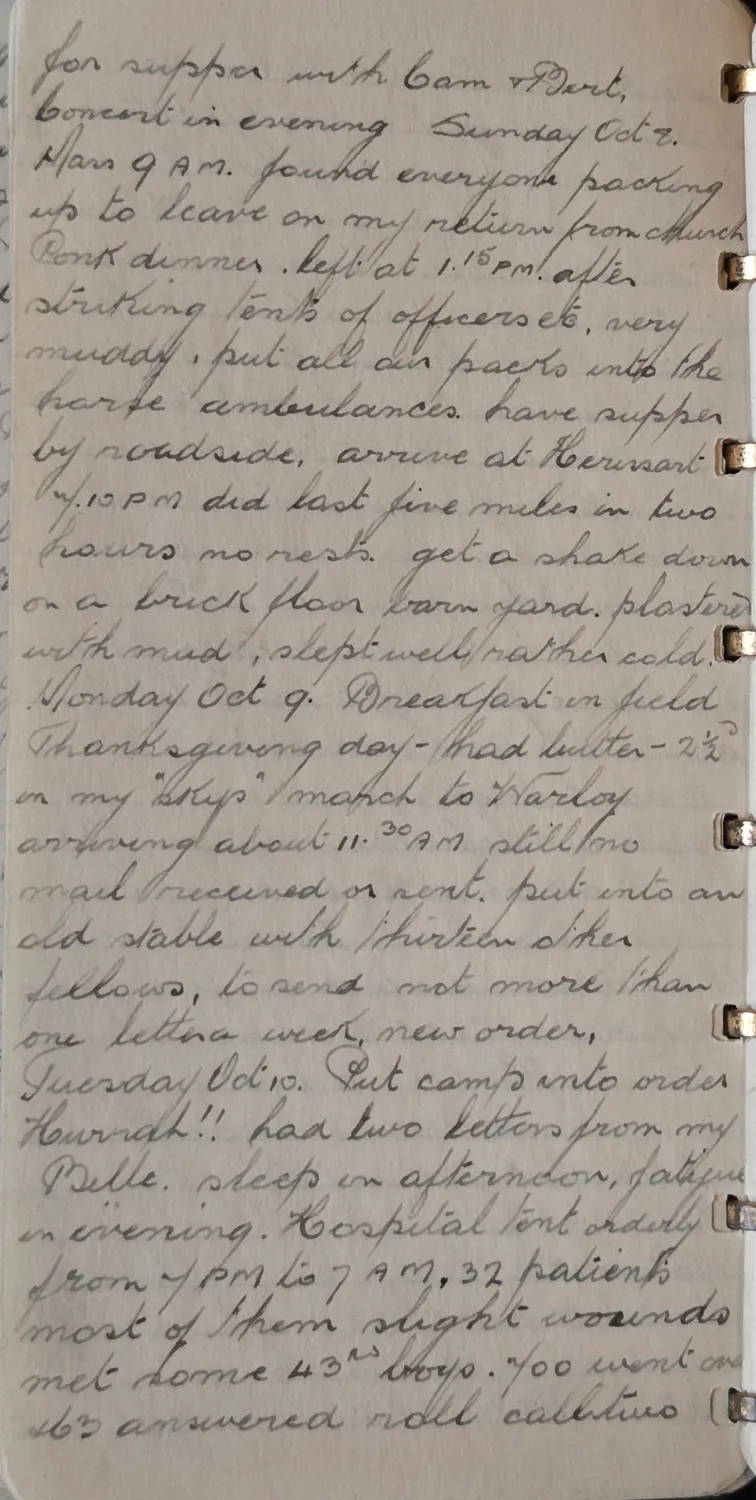 for supper with Cam & Bert,
Concert in evening Sunday Oct 8.
Mass 9 AM. found everyone packing
up to leave on my return from church
Pork dinner. left at 1.15 PM. after
striking tents of officers etc, very
muddy, put all our packs into the
horse ambulances. have supper
by roadside, arrive at Herissart
7.10 PM did last five miles in two
hours no rests. get a shake down
on a brick floor barn yard. plastered
with mud, slept well rather cold.
Monday Oct 9. Breakfast in field
Thanksgiving day - had butter - 2½D
in my "skys" march to Warloy
arriving about 11.30 AM still no
mail received or sent. put into an
old stable with thirteen other
fellows, to send not more than
one letter a week, new order,
Tuesday Oct 10. Put camp into order
Hurrah!! had two letters from my
Belle. sleep in afternoon, fatigue
in evening. Hospital tent orderly
from 7 PM to 7 AM, 32 patients
most of them slight wounds
met some 43rd boys. 700 went over
&63 answered roll call two